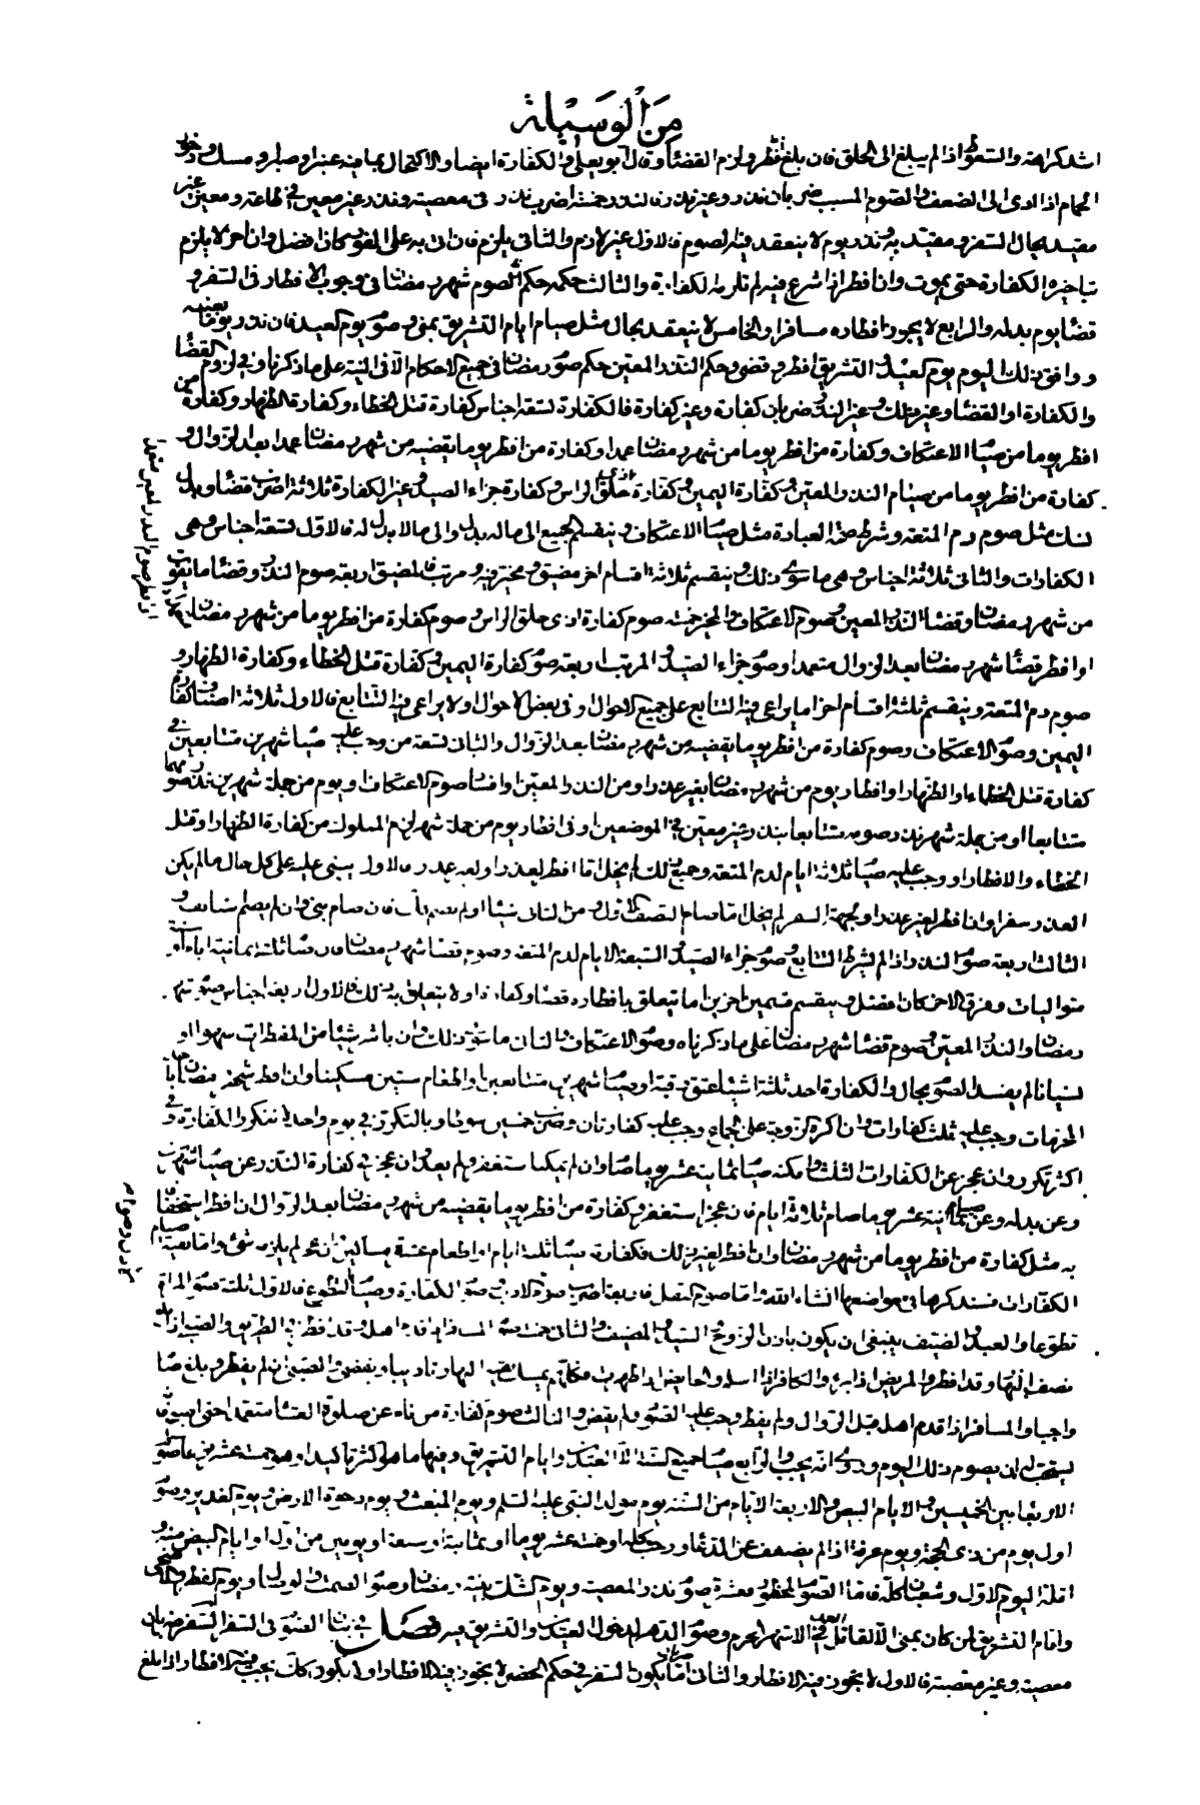 من الوسيلة
اشد كراهة والسعوط اذا لم يبلغ الى الحلق فان بلغ افطر ولزم القضاء وقال ابو يعلى والكفارة ايضا والاكتحال بما فيه عنبر او صبر او مسك ودخول
الحمام اذا ادى الى الضعف والصوم المسبب ضربان نذر وغير نذر فالنذر خمسة اضرب نذر فى معصية ونذر غير معين فى طاعة ومعين غير
مقيد بحال السفر ومقيد به ونذر يوم لا ينعقد فيه الصوم فالاول غير لازم والثانى يلزم فان اتى به على الفور كان افضل وان اخر لا يلزم
بتاخيره الكفارة حتى يموت وان افطر اذا شرع فيه لم تلزمه الكفارة والثالث حكمه حكم الصوم شهر رمضان فى وجوب الافطار فى السفر و
قضاء يوم بدله والرابع لا يجوز افطاره مسافرا والخامس لا ينعقد بحال مثل صيام ايام التشريق بمنى وصوم يوم العيد فان نذر يوما بعينه
ووافق ذلك اليوم يوم العيد او التشريق افطر وقضى وحكم النذر المعين حكم صوم رمضان فى جميع الاحكام الا فى النية على ما ذكرنا وفى لزوم القضاء
والكفارة او القضاء وغير ذلك وغير النذر ضربان كفارة وغير كفارة فالكفارة تسعة اجناس كفارة قتل الخطاء وكفارة الظهار وكفارة من
افطر يوما من صيام الاعتكاف وكفارة من افطر يوما من شهر رمضان عمدا وكفارة من افطر يوما يقضيه من شهر رمضان عمدا بعد الزوال و
كفارة من افطر يوما من صيام النذر المعين وكفارة اليمين وكفارة اذى حلق الراس وكفارة جزاء الصيد وغير الكفارة ثلاثة اضرب قضاء وبدل
نسك مثل صوم دم المتعة وشرط صحة العبادة مثل صيام الاعتكاف وينقسم الجميع الى ماله بدل والى مالا بدل له فالاول تسعة اجناس وهى
الكفارات والثانى ثلاثة اجناس وهى ما سوى ذلك وينقسم ثلاثة اقسام اخر مضيق ومخير فيه ومرتب فالمضيق اربعة صوم النذر وقضاء ما يفوت
من شهر رمضان وقضاء النذر المعين وصوم الاعتكاف والمخير خمسة صوم كفارة اذى حلق الراس وصوم كفارة من افطر يوما من شهر رمضان
او افطر قضاء شهر رمضان بعد الزوال متعمدا وصوم جزاء الصيد والمرتب اربعة صوم كفارة اليمين وكفارة قتل الخطاء وكفارة الظهار و
صوم دم المتعة وينقسم ثلثة اقسام اخر اما يراعى فيه التتابع على جميع الاحوال او فى بعض الاحوال او لا يراعى فيه التتابع فالاول ثلاثة اصناف كفارة
اليمين وصوم الاعتكاف وصوم كفارة من افطر يوما يقضيه من شهر رمضان بعد الزوال والثانى تسعة من وجب عليه صيام شهرين متتابعين فى
كفارة قتل الخطاء او الظهار او افطار يوم من شهر رمضان بغير عذر او من النذر المعين او افساد صوم الاعتكاف او يوم من جملة شهرين نذر صومهما
متتابعا او من جملة شهر نذر صومه متتابعا بنذر غير معين فى الموضعين او فى افطار يوم من جملة شهر لزم المملوك من كفارة الظهار او قتل
الخطاء والافطار او وجب عليه صيام ثلاثة ايام لدم المتعة وجميع ذلك لم يخل اما افطر لعذر او لغير عذر فالاول يبنى عليه على كل حال ما لم يكن
العذر سفرا وان افطر لغير عذر
الثالث اربعة صوم النذر اذا لم يشرط التتابع وصوم جزاء الصيد والسبعة الايام لدم المتعة وصوم قضاء شهر رمضان
متواليات وفرق الاخر كان افضل وينقسم قسمين اخرين اما يتعلق بافطاره قضاء وكفارة او لا يتعلق به ذلك فالاول اربعة اجناس صوم شهر
رمضان والنذر المعين وصوم قضاء شهر رمضان على ما ذكرناه وصوم الاعتكاف والثانى ما سوى ذلك وان باشر شيئا من المفطرات سهوا او
نسيانا لم يفسد الصوم بحال والكفارة احد ثلثة اشياء عتق رقبة او صيام شهرين متتابعين او اطعام ستين مسكينا وان افطر شهر رمضان
المحرمات وجب عليه ثلث كفارات وان اكره زوجته على الجماع وجب عليه كفارتان وضرب خمسين سوطا وبالتكرر فى يوم واحد لا تتكرر الكفارة وفى
اكثر تكرر وان عجز عن الكفارات الثلث وامكنه صيام ثمانية عشر يوما صام وان لم يمكنه استغفر ولم يعد وان عجز فى كفارة النذر عن صيام شهرين
وعن بدله وعن صيام ثمانية عشر يوما صام ثلاثة ايام فان عجز استغفر وكفارة من افطر يوما يقضيه من شهر رمضان بعد الزوال ان افطر استخفافا
به مثل كفارة من افطر يوما من شهر رمضان وان افطر لغير ذلك فكفارته صيام ثلثة ايام او اطعام عشرة مساكين فان عجز لم يلزمه شئ واما بقية صيام
الكفارات فسنذكرها فى مواضعها انشاء الله واما صوم النفل فاربعة اضرب صوم الادب وصوم الكفارة وصيام التطوع فالاول ثلثة صوم المراة
تطوعا والعبد والضيف ينبغى ان يكون باذن الزوج والسيد والمضيف والثانى خمسة صوم المسافر اذا قدم اهله وقد افطر فى الطريق والصبى اذا بلغ
نصف النهار وقد افطر والمريض اذا برئ والكافر اذا اسلم والحايض اذا طهرت
واجبا والمسافر اذا قدم اهله قبل الزوال ولم يفطر وجب عليه الصوم ولم يقض والثالث صوم كفارة من نام عن صلوة العشاء متعمدا حتى اصبح فانه
يستحب له ان يصوم ذلك اليوم وروى انه يجب والرابع صيام جميع السنة الا العيدين وايام التشريق وفيها ما هو اكثر تاكيدا وهو خمسة عشر
الاربعاء بين الخميسين والايام البيض والاربعة الايام من السنة يوم مولد النبى عليه السلم ويوم المبعث ويوم دحوة الارض ويوم الغدير وصوم
اول يوم من ذى الحجة ويوم عرفة اذا لم يضعف عن الدعاء ورجب كله او خمسة عشر يوما او ثمانية او سبعة او يومين من اوله او ايام البيض منه و
اقله اليوم الاول وشعبان كله فاما الصوم المحظور فعشرة صوم نذر المعصية ويوم الشك بنية رمضان وصوم الصمت والوصال ويوم الفطر والاضحى
وايام التشريق لمن كان بمنى الا لقاتل العمد فى الاشهر الحرم وصوم الدهر لدخول العيدين والتشريق فيه فصل فى بيان الصوم فى السفر السفر ضربان
معصية وغير معصية فالاول لا يجوز فيه الافطار والثانى اما يكون السفر فى حكم الحضر لا يجوز فيه الافطار او لا يكون كان يجب فيه الافطار اذا بلغ